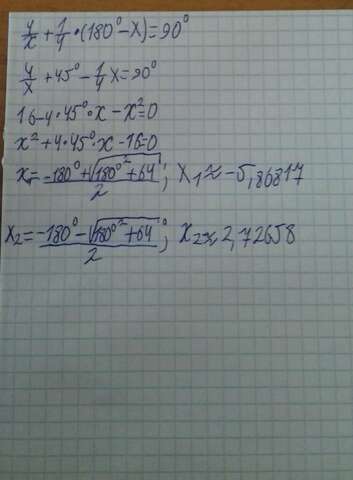 4/x + 1/4 · (180° - x) = 90°
4/x + 45° - 1/4 x = 90°
16 - 4 · 45° · x - x² = 0
x² + 4 · 45° · x - 16 = 0
x₁ = (-180° + √(180°² + 64)) / 2 ; x₁ ≈ -5,86817
x₂ = (-180° - √(180°² + 64)) / 2 ; x₂ ≈ 2,72658